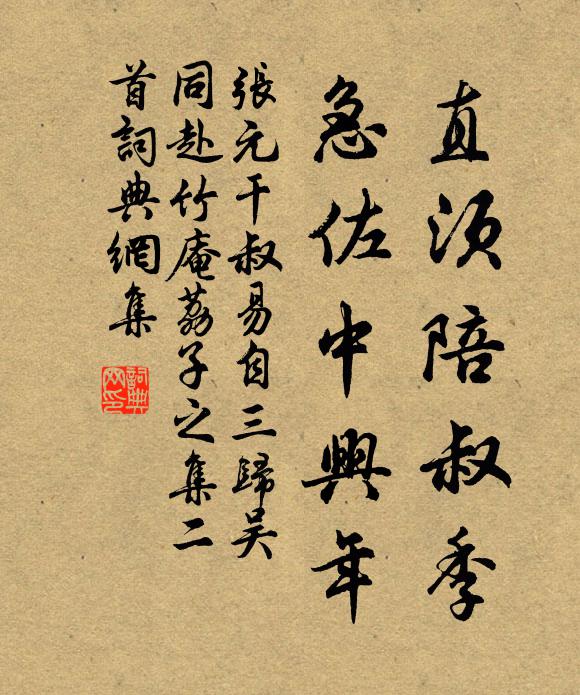 直須陪叔季
急佐中興年
張元干叔易自三歸吴
同赴竹庵荔子之集二
首詞典網集
詞典网印